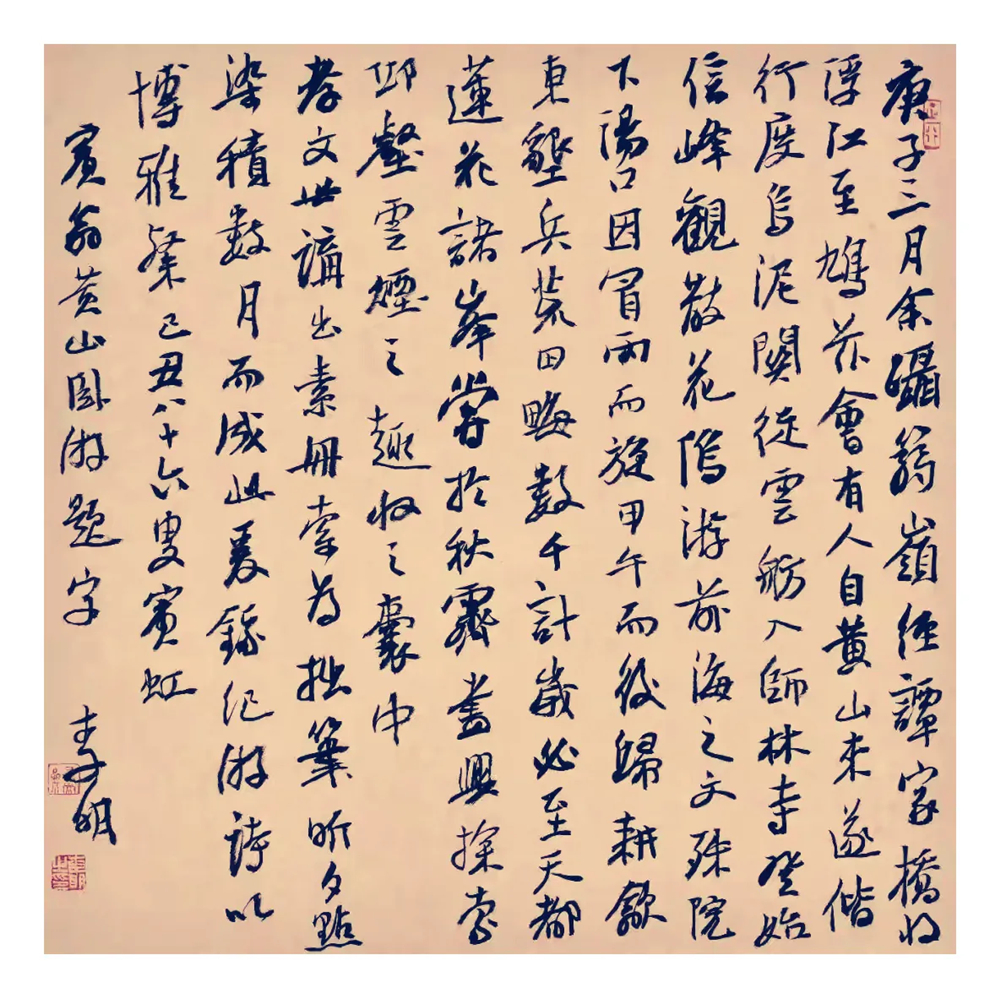 庚子三月余躡箬嶺經譚家橋將
浮江至鳩茲會有人自黃山來遂偕
行度烏泥關從雲舫入師林寺登始
信峰觀散花隖游前海之文殊院
下湯口因冒雨而旋甲午而後歸耕歙
東墾兵荒田畮數千計歲必至天都
蓮花諸峯嘗於秋霽畫興探索
邱壑雲煙之趣收之囊中
孝文世講出素冊索為拙筆昕夕點
染積數月而成此夏錄紀游詩以
博雅粲己丑八十六叟賓虹
賓翁黃山臥游題字
李明